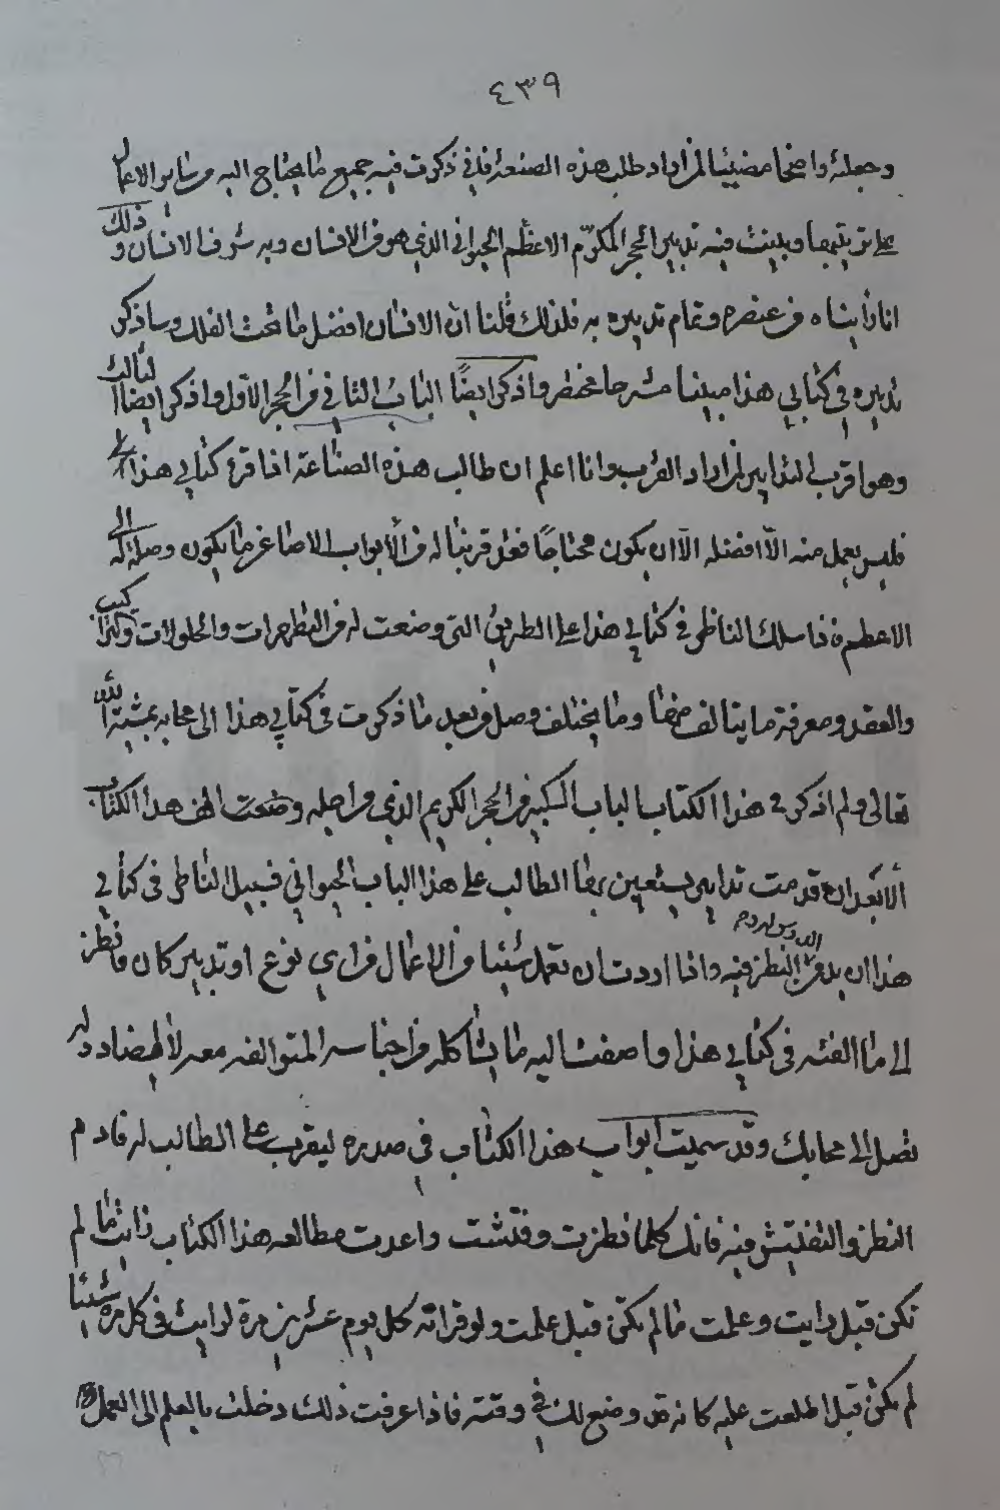 ٤٣٩
وجعلته واضحا مضيئا لمن اراد طلب هذه الصنعة فاني ذكرت فيه جميع ما يحتاج اليه من سائر الاعمال
على ترتيبها وبينت فيه تدبير الحجر المكرّم الاعظم الحيواني الذي هو في الانسان وبه شرف الانسان وذلك
انا راينا ه من عنصره وتمام تدبيره به فلذلك قلنا ان الانسان افضل ما تحت الفلك وساذكر
تدبيره في كتابي هذا مبينا مشرحا مختصر واذكر ايضًا الباب الثاني في الحجر الاول واذكر ايضا الثالث
وهو اقرب التدابير لمن اراد القرب وانا اعلم ان طالب هذه الصناعة اذا قرء كتابي هذا
فليس يعمل منه الّا افضله الّا ان يكون محتاجًا فقد قربنا له في الأبواب الاصاغر ما يكون وصلة له الى
الاعظم فاذا سلك الناظر في كتابي هذا على الطريق التى وضعت له في المطهرات والحلولات والتراكيب
والعقد ومعرفة ما يتالف منها وما يختلف وصل من بعد ما ذكرت في كتابي هذا الى محابه بمشية الله
تعالى ولم اذكر في هذا الكتاب الباب الكبير في الحجر الكريم الذي من اجله وضعت هذا الكتاب
الّا بعد ان قدمت تدابير يستعين بها الطالب على هذا الباب الحيواني فسبيل الناظر في كتابي
هذا ان يدقق النظر فيه واذا اردت ان تعمل شيئا من الاعمال في اي نوع او تدبير كان فانظر
الى ما الفته في كتابي هذا واضفت اليه ما يشاكله من اجناسه المتوالفه معه لا المضاددله
تصل الى محابك وقد سميت ابواب هذا الكتاب في صدره ليقرب على الطالب له فادم
النظر والتفتيش فيه فانك كلما نظرت وفتشت واعدت مطالعه هذا الكتاب رايت ما لم
تكن قبل رايت وعلمت ما لم تكن قبل علمت ولو قراته كل يوم عشرين مرة لرايت في كل مرة شيئا
لم تكن قبل اطلعت عليه كانه قد وضع لك في وقته فاذا عرفت ذلك دخلت بالعلم الى العمل